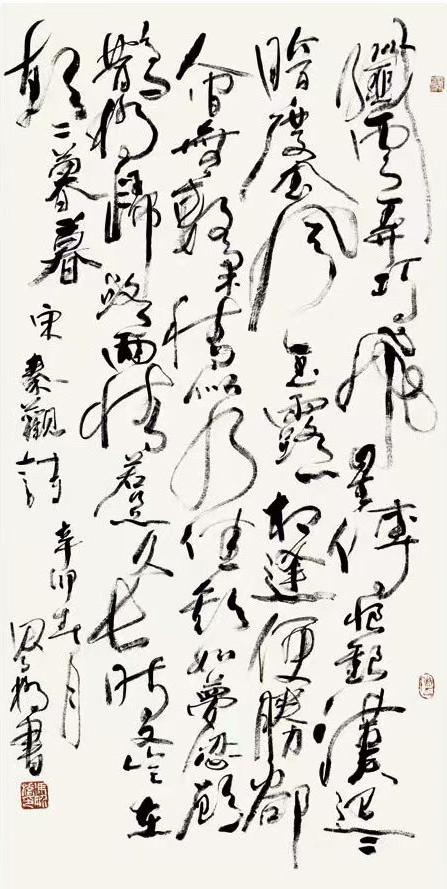 纖雲弄巧飛星傳恨銀漢迢〻
暗度金風玉露相逢便勝卻
人間無數柔情似水佳期如夢忍顧
鵲橋歸路兩情若是久長時又豈在
朝〻暮暮
宋秦觀詩
辛卯春月
書